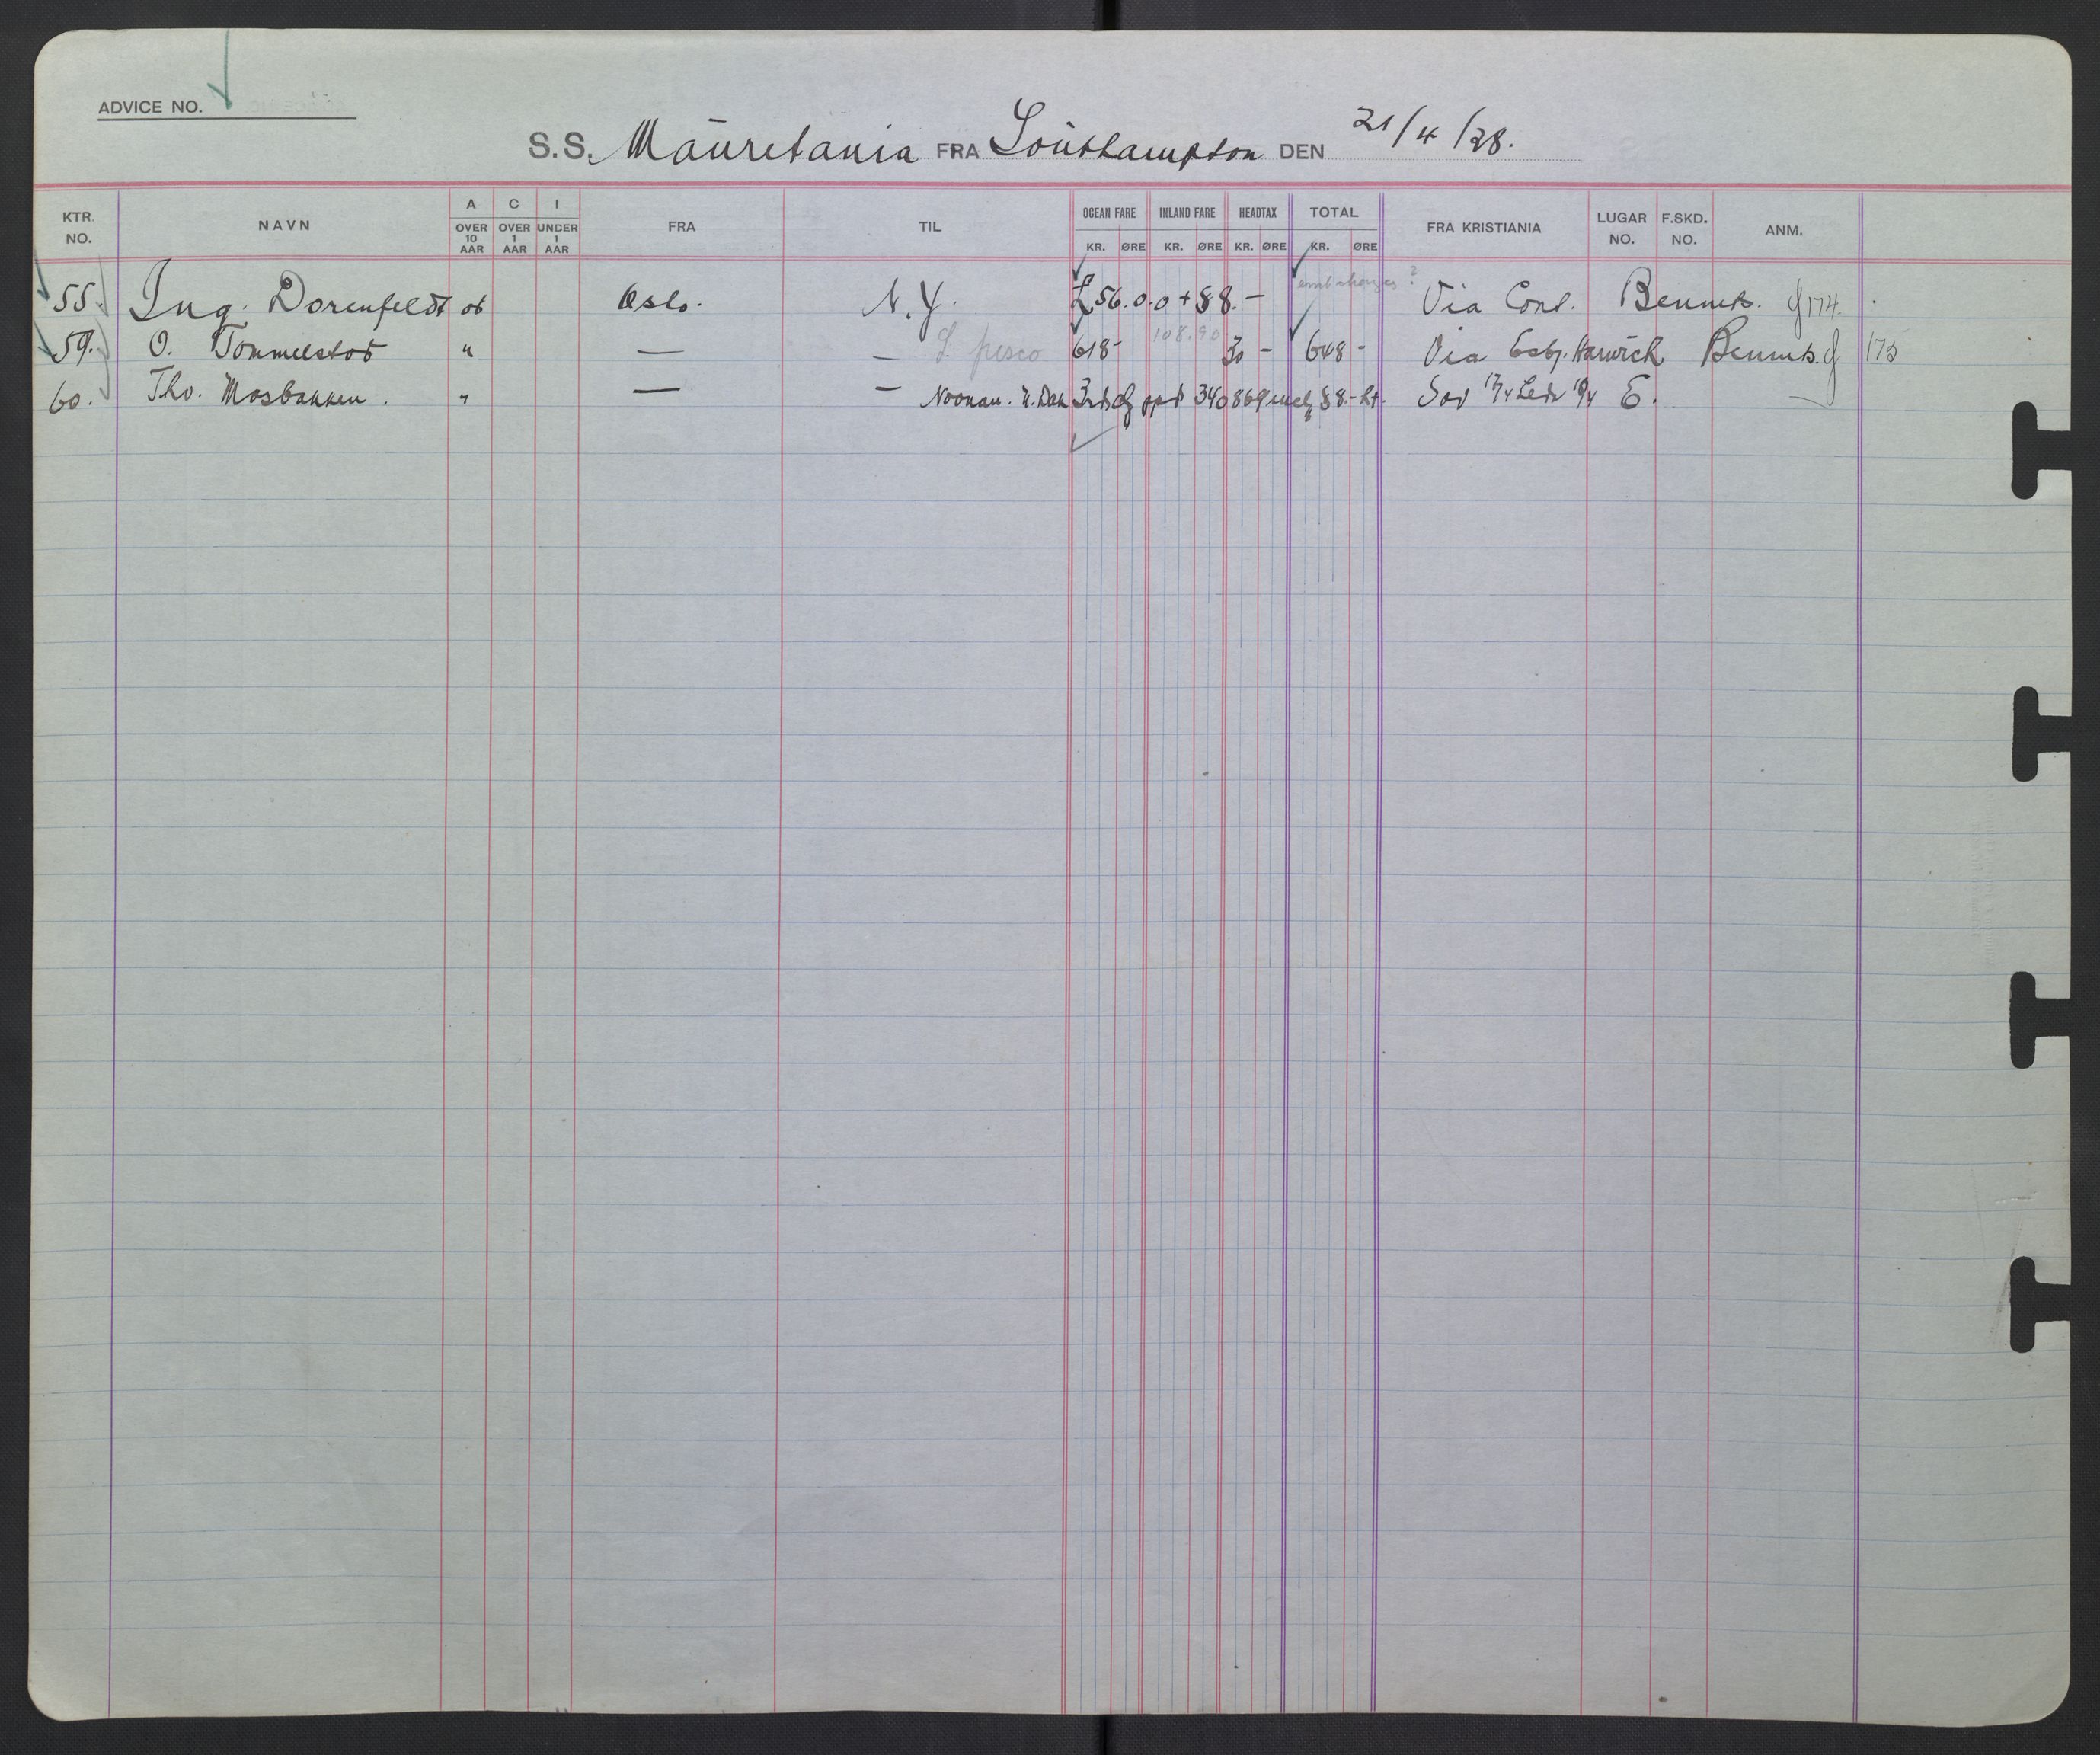 ADVICE NO.
S.S. Mauretania FRA Southampton DEN 21/4/28.
KTR. NO. NAVN A OVER 10 AAR C OVER 1 AAR I UNDER 1 AAR FRA TIL OCEAN FARE KR. ØRE INLAND FARE KR. ØRE HEADTAX KR. ØRE TOTAL KR. ØRE FRA KRISTIANIA LUGAR NO. F.SKD. NO. ANM.
55. Ing. Dorenfeldt Oslo. N.Y. £56.0.0 + $8.— Via Cont. Bennets. 174.
59. O. Tommelstad " — — 618- 108.90 30 - 648 - Via Esbj. Harwich Bennets. 175
60. Tho. Mosbakken. " — — Noonan. N. Dak 340869 $8.- Ht. 17/4 19/4 E.